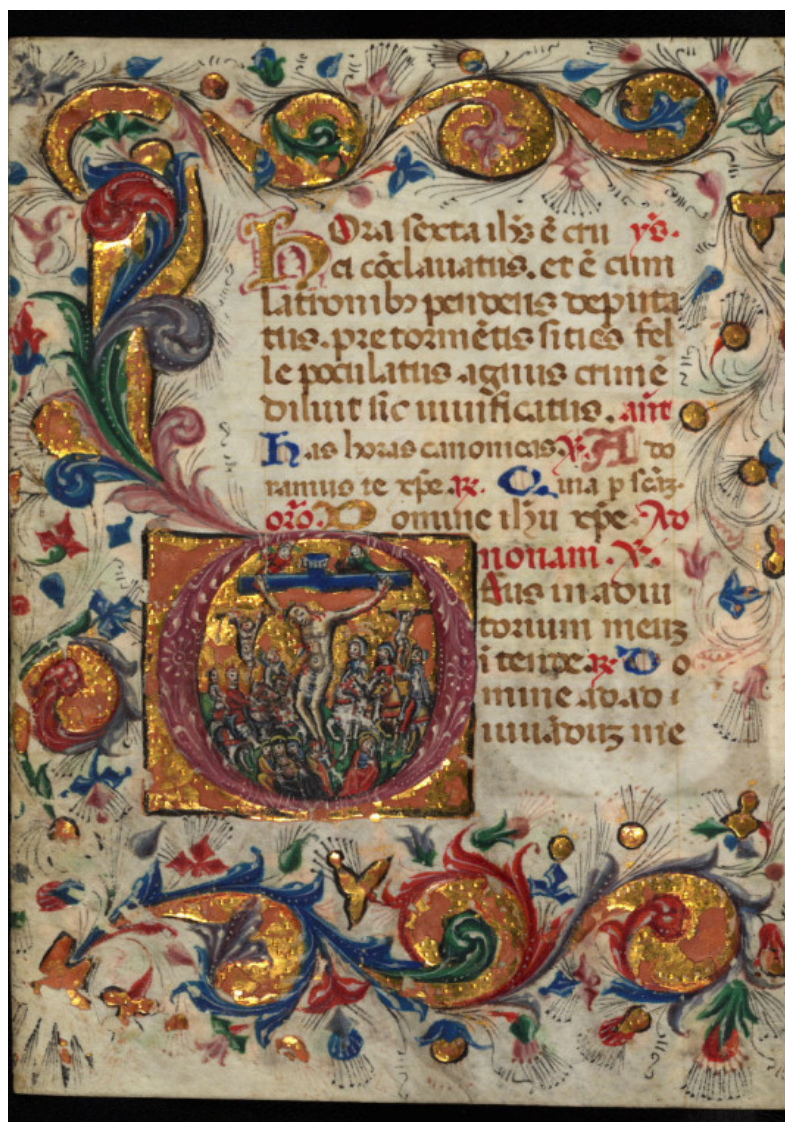 hOra sexta ihūs ē cru ys̄.
ci cōclauatus. et ē cum
latronibȝ pendens deputa
tus. pre tormētis sitiēs fel
le poculatus agnus crimē
diluit sic uiuificatus. ant̄
has horas canonicas. ℣. Ado
ramus te xp̄e. ℟. Quia p̄ scām̄.
orō. Domine ihū xp̄e. Ad
nonam. ℣.
Deus in adiu
torium meuȝ
ītende. ℟. Do
mine ad ad i
uuāduȝ me